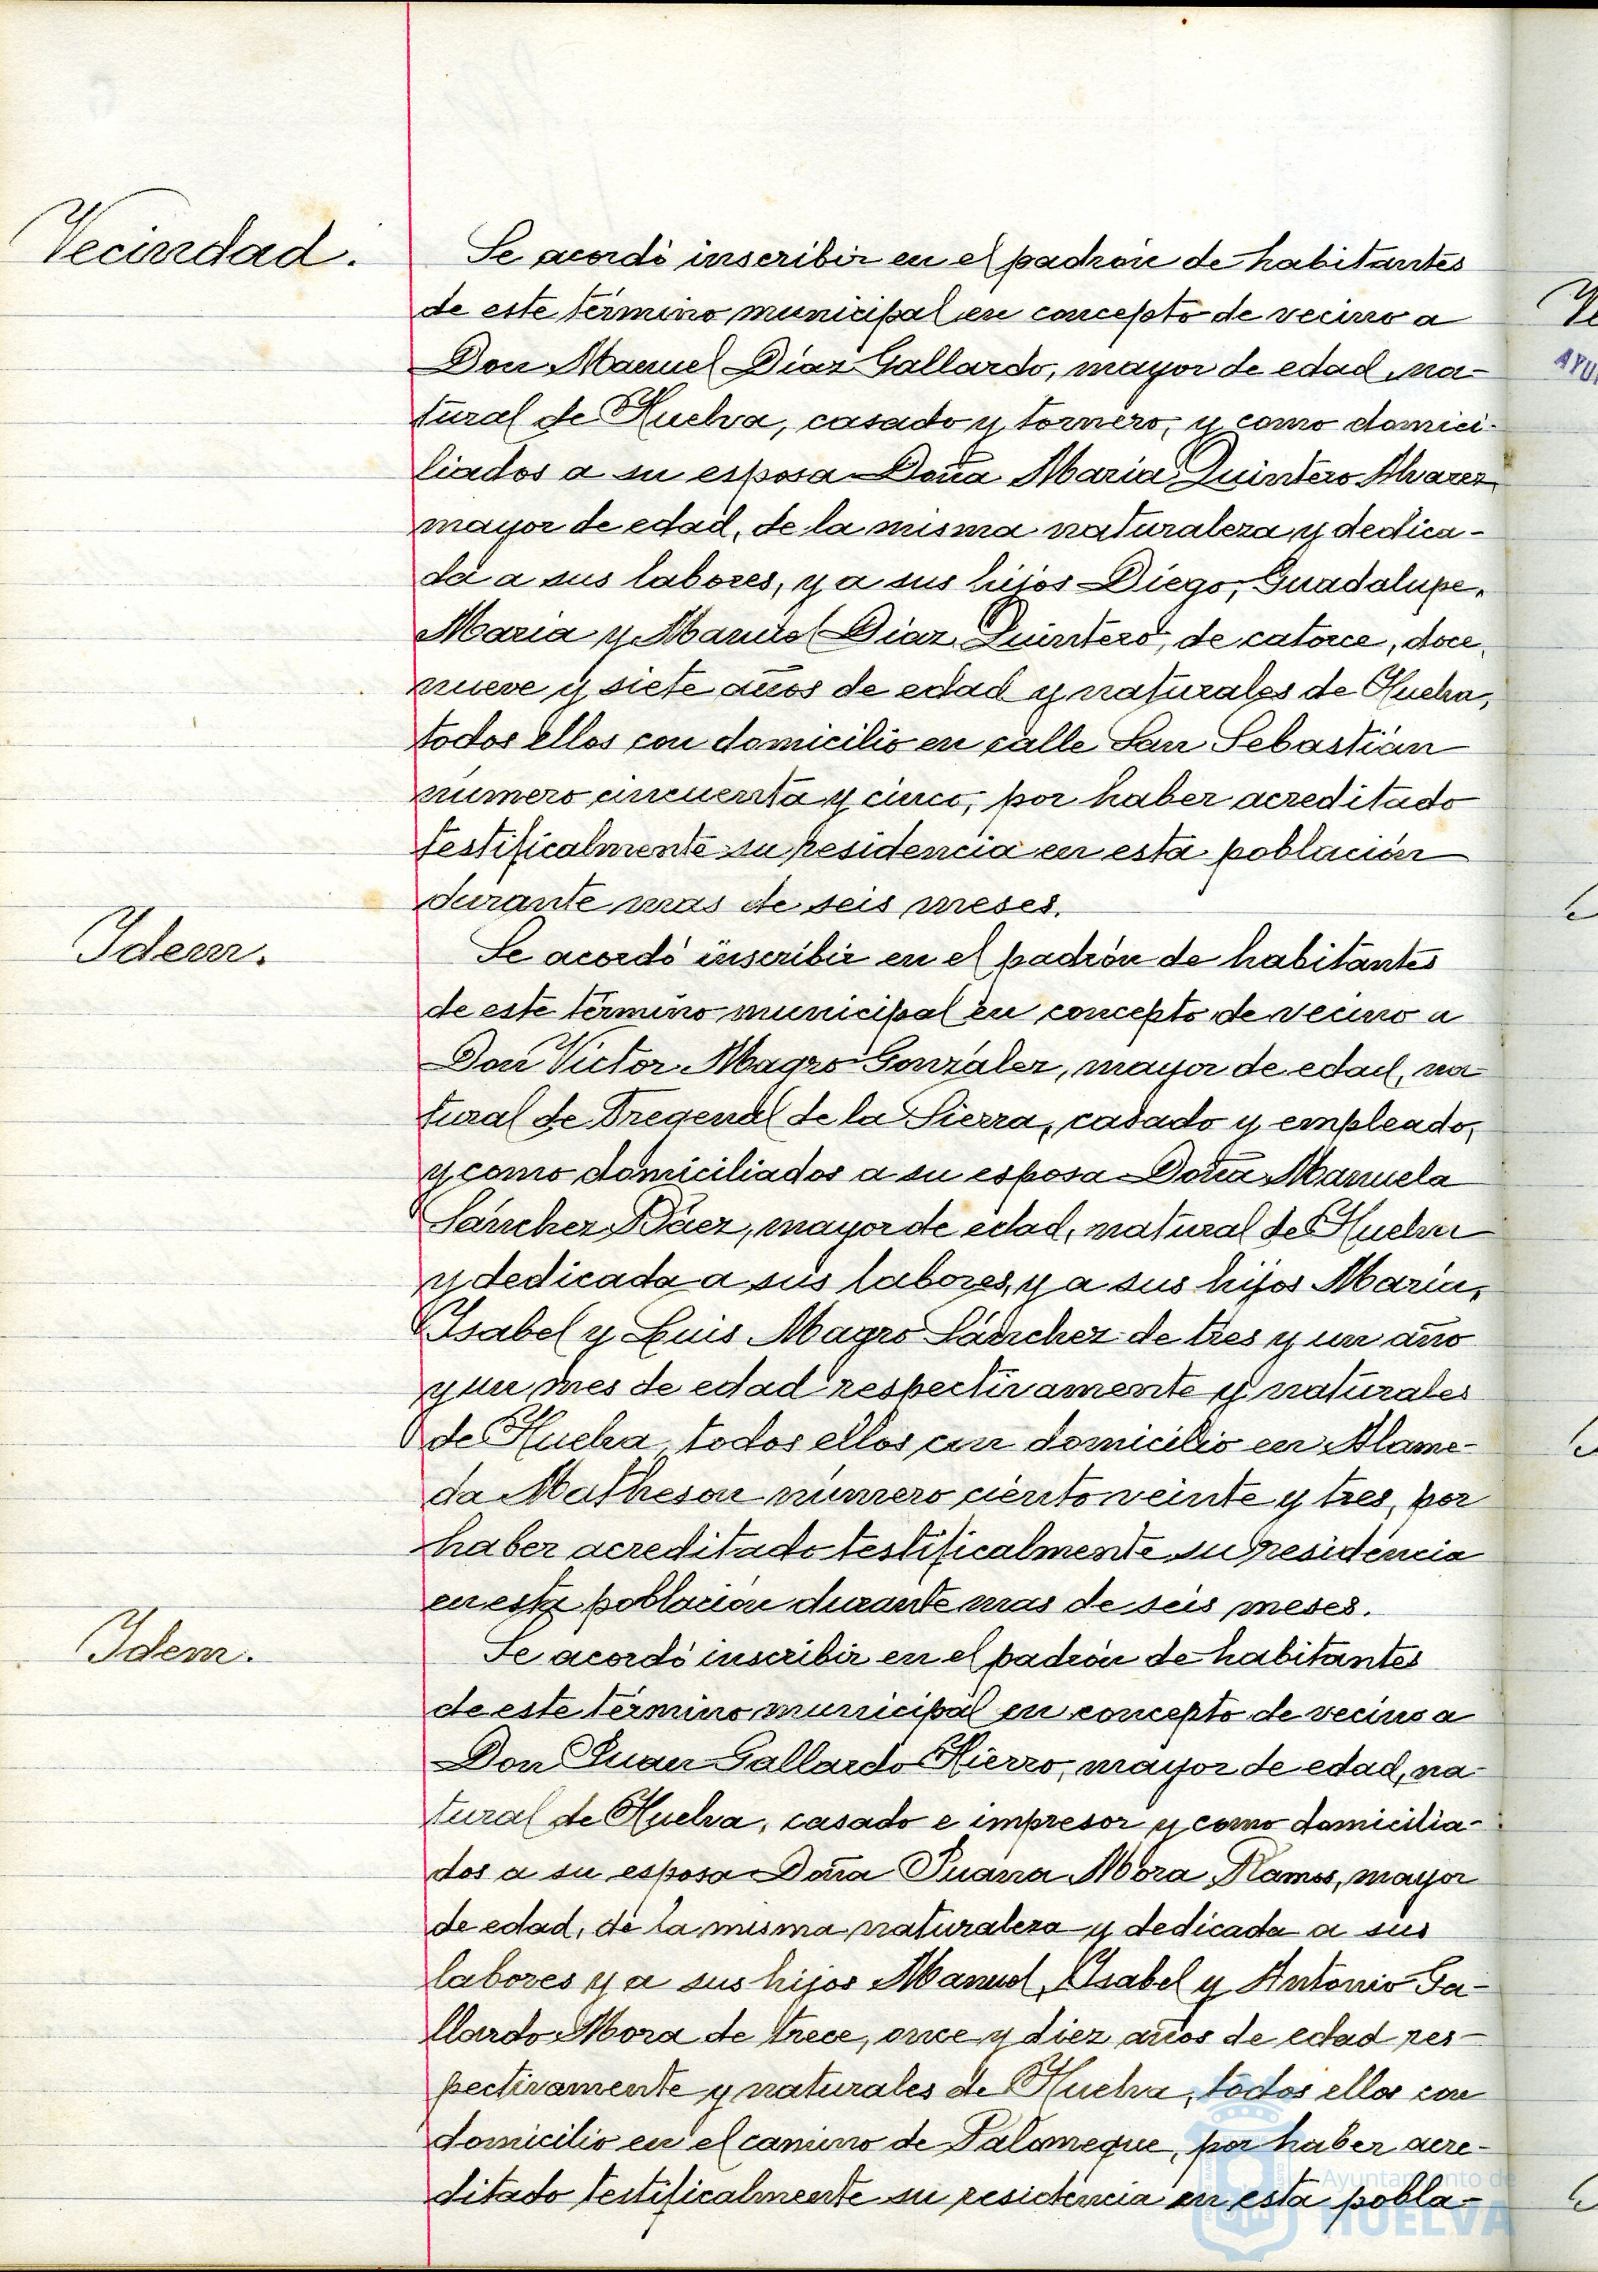 Vecindad.
Se acordó inscribir en el padrón de habitantes
de este término municipal en concepto de vecino a
Don Manuel Díaz Gallardo, mayor de edad, na-
tural de Huelva, casado y tornero, y como domici-
liados a su esposa Doña María Quintero Alvarez
mayor de edad, de la misma naturaleza y dedica-
da a sus labores, y a sus hijos Diego, Guadalupe,
María y Manuel Díaz Quintero, de catorce, doce,
nueve y siete años de edad y naturales de Huelva,
todos ellos con domicilio en calle San Sebastián
número cincuenta y cinco, por haber acreditado
testificalmente su residencia en esta población
durante mas de seis meses.
Idem.
Se acordó inscribir en el padrón de habitantes
de este término municipal en concepto de vecino a
Don Victor Magro González, mayor de edad, na-
tural de Fregenal de la Sierra, casado y empleado,
y como domiciliados a su esposa Doña Manuela
Sánchez Báez, mayor de edad, natural de Huelva
y dedicada a sus labores, y a sus hijos María,
Isabel y Luis Magro Sánchez de tres y un año
y un mes de edad respectivamente y naturales
de Huelva, todos ellos con domicilio en Alame-
da Matheson número ciento veinte y tres, por
haber acreditado testificalmente su residencia
en esta población durante mas de seis meses.
Idem.
Se acordó inscribir en el padrón de habitantes
de este término municipal en concepto de vecino a
Don Juan Gallardo Hierro, mayor de edad, na-
tural de Huelva, casado e impresor y como domicilia-
dos a su esposa Doña Juana Mora Ramos, mayor
de edad, de la misma naturaleza y dedicada a sus
labores y a sus hijos Manuel, Isabel y Antonio Ga-
llardo Mora de trece, once y diez años de edad res-
pectivamente y naturales de Huelva, todos ellos con
domicilio en el camino de Palomeque, por haber acre-
ditado testificalmente su residencia en esta pobla-
Ayuntamiento de
HUELVA